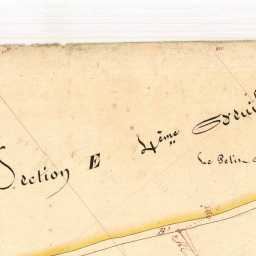 Section E 4ème Feuil
Le Petit